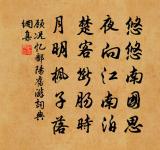 悠悠南國思
夜向江南泊
楚客斷腸時
月明楓子落
顧況忆鄱陽舊游詞典
網集